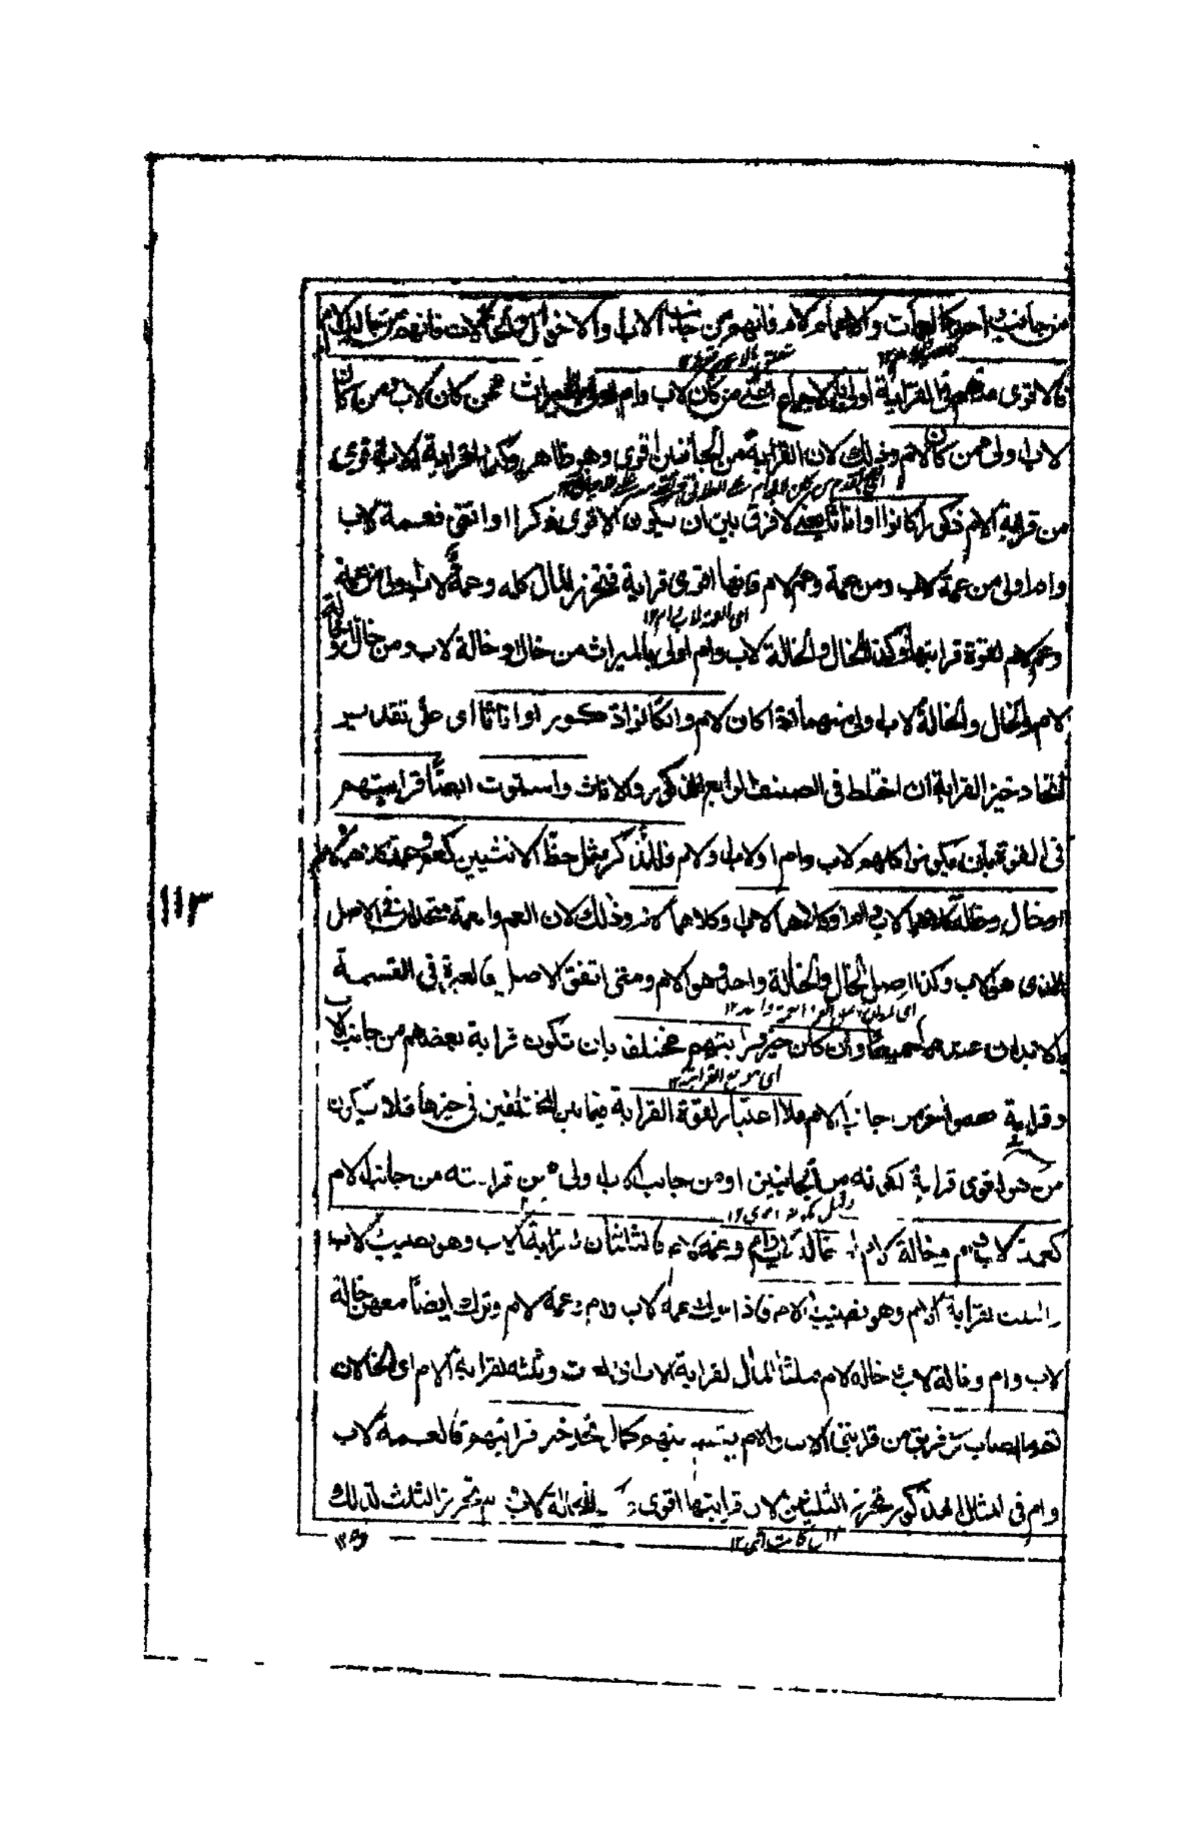 من جانب واحد كالعمات والاعمام لام فانهم من جانب الاب والاخوال والخالات فانهم من جانب الام
فالاقوى منهم فى القرابة اولى بالاجماع اعنى من كان لاب وام اولى بالميراث ممن كان لاب ومن كان
لاب اولى ممن كان لام وذلك لان القرابة من الجانبين اقوى وهو ظاهر وكذا القرابة لاب اقوى
من قرابة الام ذكورا كانوا او اناثا يعنى لا فرق بين ان يكون الاقوى ذكرا او انثى فعمة لاب
وام اولى من عمة لاب ومن عمة وعم لام فانها اقوى قرابة فتحرز المال كله وعمة لاب اولى من عمة
وعم لام لقوة قرابتها وكذا الخال والخالة لاب وام اولى بالميراث من خال وخالة لاب ومن خال وخالة
اى العمة لاب وام ١٢
لام والخال والخالة لاب اولى منهما اذا كان لام وان كانوا ذكورا او اناثا اى على تقدير
اتحاد حيز القرابة ان اختلط فى الصنف الرابع الذكور والاناث واستوت ايضا قرابتهم
فى القوة بان يكونوا كلهم لاب وام او لاب او لام فللذكر مثل حظ الانثيين كعم وعمة كلاهما لام
او خال وخالة كلاهما لاب وام او كلاهما لاب او كلاهما لام وذلك لان العم والعمة متحدان فى الاصل
الذى هو الاب وكذا اصل الخال والخالة واحد وهو الام ومتى اتفق الاصل فالعبرة فى القسمة
بالابدان عندهم جميعا وان كان حيز قرابتهم مختلف بان تكون قرابة بعضهم من جانب الاب
وقرابة بعض اخر من جانب الام فلا اعتبار لقوة القرابة فيما بين المختلفين فى حيزها فلا يكون
اى موضع القرابة ١٢
من هو اقوى قرابة لكونه من الجانبين او من جانب الاب اولى ممن قرابته من جانب الام
كعمة لاب وام وخالة لام او خالة لاب وام وعمة لام فالثلثان لقرابة الاب وهو نصيب الاب
والثلث لقرابة الام وهو نصيب الام فاذا ترك عمة لاب وام وعمة لام وترك ايضا معهن خالة
لاب وام وخالة لاب وخالة لام فثلثا المال لقرابة الاب اى العمات وثلثه لقرابة الام اى الخالات
ثم ما اصاب كل فريق من قرابتى الاب والام يقسم بينهم كما لو اتحد حيز قرابتهم فالعمة لاب
وام فى المثال المذكور تحرز الثلثين لان قرابتها اقوى والخالة لاب وام تحرز الثلث لذلك
١١٣